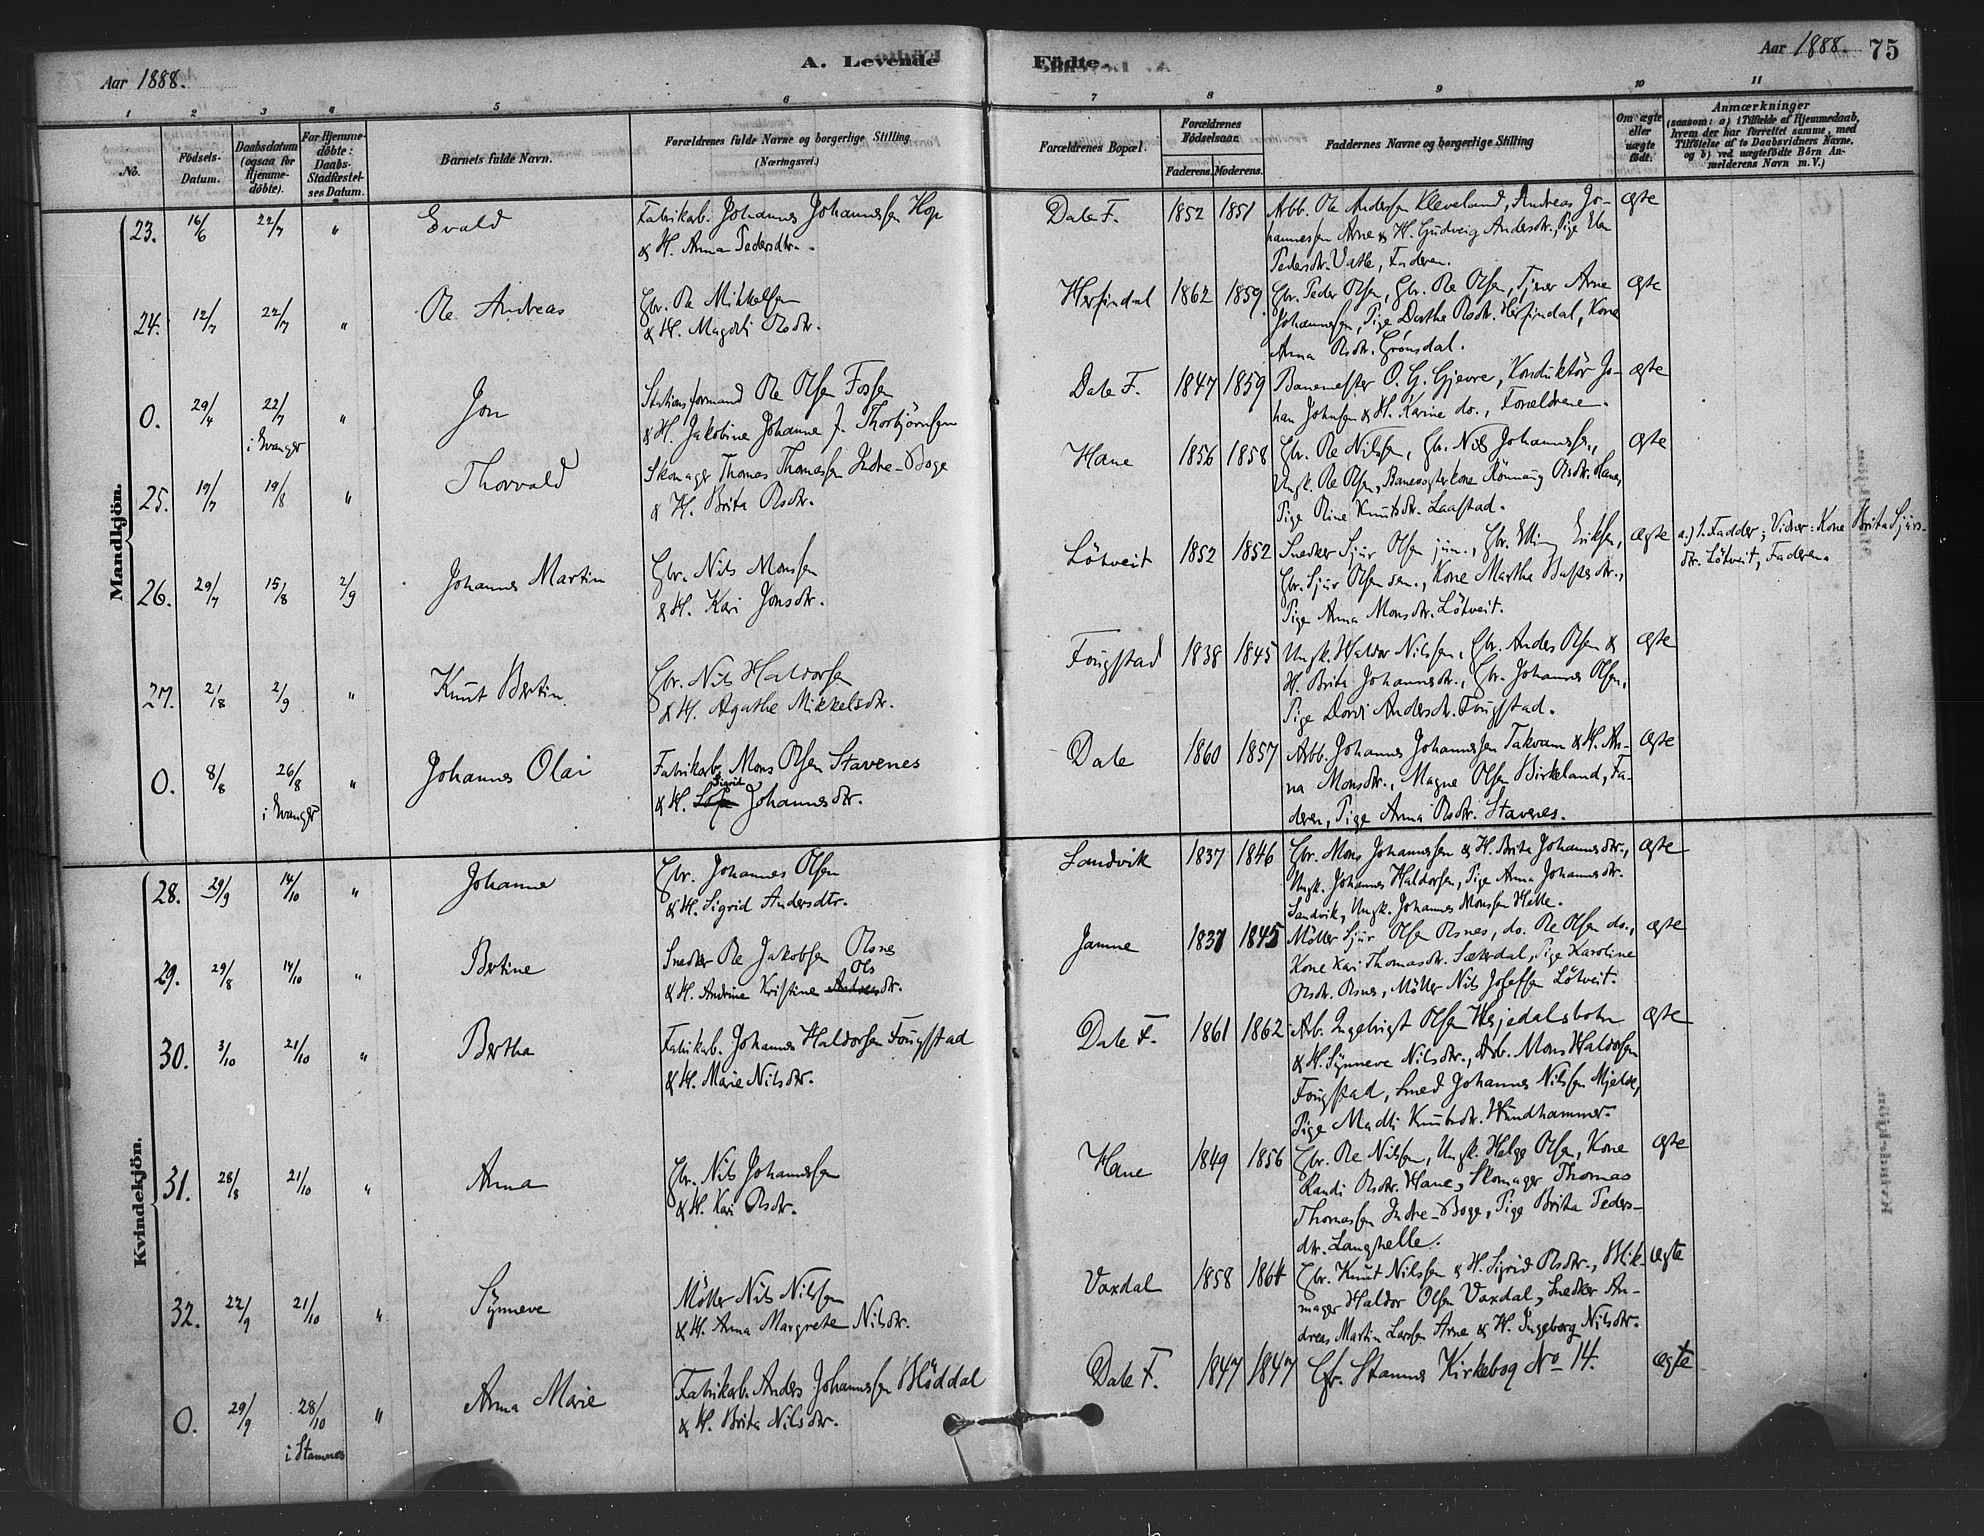 Aar 1888.
A. Levende
Födte.
Aar 1888. 75
1 2 3 4 5 6 7 8 9 10 11
No.
Födsels-
Datum.
Daabsdatum
(ogsaa for
Hjemme-
döbte).
For Hjemme-
döbte:
Daabs-
Stadfæstel-
ses Datum.
Barnets fulde Navn.
Forældrenes fulde Navne og borgerlige Stilling
(Næringsvei.)
Forældrenes Bopæl.
Forældrenes
Födselsaar.
Faderens. Moderens.
Faddernes Navne og borgerlige Stilling
Om ægte
eller
uægte
födt.
Anmærkninger
(saasom: a) i Tilfælde af Hjemmedaab,
hvem der har forrettet samme, med
Tilföielse af to Daabsvidners Navne,
og b) ved uægtefödte Börn An-
melderens Navn m. V.)
Mandkjön.
23. 16/6 22/7 " Evald
Fabrikarb. Johannes Johannessen Hop
& H. Anna Pedersdtr.
Dale F. 1852 1851
Arb. Ole Andersen Kleveland, Andreas Jo-
hannessen Arne & H. Gudveig Andersdtr., Pige Elen
Pedersdtr. Vatle, Faderen.
ægte
24. 12/7 22/7 " Ole Andreas
Gbr. Ole Mikkelsen
& H. Magdli Olsdtr.
Herfindal 1862 1859
Gbr. Peder Olsen, Gbr. Ole Olsen, Tjener Arne
Johannessen, Pige Dorthe Olsdtr. Herfindal, Kone
Anna Olsdtr. Grönsdal.
ægte
0. 29/4 22/7 " Jon
i Evanger
Stationsformand Ole Olsen Fosse
& H. Jakobine Johanne f. Thorbjörnsen
Dale F. 1847 1859
Banemester O. G. Gjevre, Konduktör Jo-
han Johnsen & H. Karine do., Forældrene.
ægte
25. 19/7 19/8 " Thorvald
Skomager Thomas Thomassen Indre-Boge
& H. Brita Olsdtr.
Hane 1856 1858
Gbr. Ole Nilsen, Gbr. Nils Johannessen,
Ungk. Ole Olsen, Banevogterkone Rönnaug Olsdtr. Hane,
Pige Oline Knutsdtr. Laastad.
ægte
26. 29/7 15/8 2/9 Johannes Martin
Gbr. Nils Monsen
& H. Kari Jonsdtr.
Lötveit 1852 1852
Snedker Sjur Olsen jun., Gbr. Elling Eriksen,
Gbr. Sjur Olsen sen., Kone Martha Bassesdtr.,
Pige Anna Monsdtr. Lötveit.
ægte
a.) 1. Fadder; Vidner: Kone Brita Sjurs-
dtr. Lötveit, Faderen
27. 2/8 2/9 " Knut Bertin.
Gbr. Nils Haldorsen
& H. Agathe Mikkelsdtr.
Fougstad 1838 1845
Ungk. Haldor Nilssen, Gbr. Anders Olsen &
H. Brita Johannesdtr., Gbr. Johannes Olsen,
Pige Dordi Andersdtr. Fougstad.
ægte
0. 8/8 26/8 " Johannes Olai
i Evanger
Fabrikarb. Mons Olsen Stavenes
& H. Sigrid Johannesdtr.
Dale 1860 1857
Arb. Johannes Johannessen Takvam & H. An-
na Monsdtr., Magne Olsen Birkeland, Fa-
deren, Pige Anna Olsdtr. Stavenes.
ægte
Kvindekjön.
28. 29/9 14/10 " Johanne
Gbr. Johannes Olsen
& H. Sigrid Andersdtr.
Sandvik 1837 1846
Gbr. Mons Johannessen & H. Brita Johannesdtr.,
Ungk. Johannes Haldorsen, Pige Anna Johannesdtr.
Sandvik, Ungk. Johannes Monssen Helle.
ægte
29. 29/8 14/10 " Bertine
Snedker Ole Jakobsen Olsnes
& H. Andrine Kristine Olsdtr.
Jamne 1837 1845
Möller Sjur Olsen Olsnes, do. Ole Olsen do.,
Kone Kari Thomasdtr. Sæterdal, Pige Karoline
Olsdtr. Olsnes, Möller Nils Josefsen Lötveit.
ægte
30. 3/10 21/10 " Bertha
Fabrikarb. Johannes Haldorsen Fougstad
& H. Marie Nilsdtr.
Dale F. 1861 1862
Arb. Ingebrigt Olsen Hesjedalsbotn
& H. Synneve Nilsdtr., Arb. Mons Haldorsen
Fougstad, Smed Johannes Nilssen Mjelde,
Pige Madli Knutsdtr. Hundhammer.
ægte
31. 28/8 21/10 " Anna
Gbr. Nils Johannessen
& H. Kari Olsdtr.
Hane 1849 1856
Gbr. Ole Nilsen, Ungk. Helge Olsen, Kone
Randi Olsdtr. Hane, Skomager Thomas
Thomassen Indre-Boge, Pige Brita Peders-
dtr. Langhelle.
ægte
32. 22/9 21/10 " Synneve
Möller Nils Nilssen
& H. Anna Margrete Nilsdtr.
Vaxdal 1858 1864
Gbr. Knut Nilssen & H. Sigrid Olsdtr., Blik-
mager Haldor Olsen Vaxdal, Snedker An-
dreas Martin Larsen Arne & H. Ingeborg Nilsdtr.
ægte
0. 29/9 28/10 " Anna Marie
i Stamnes
Fabrikarb. Anders Johannessen Bløddal
& H. Brita Nilsdtr.
Dale F. 1847 1847
Cfr. Stamnes Kirkebog No 14.
ægte